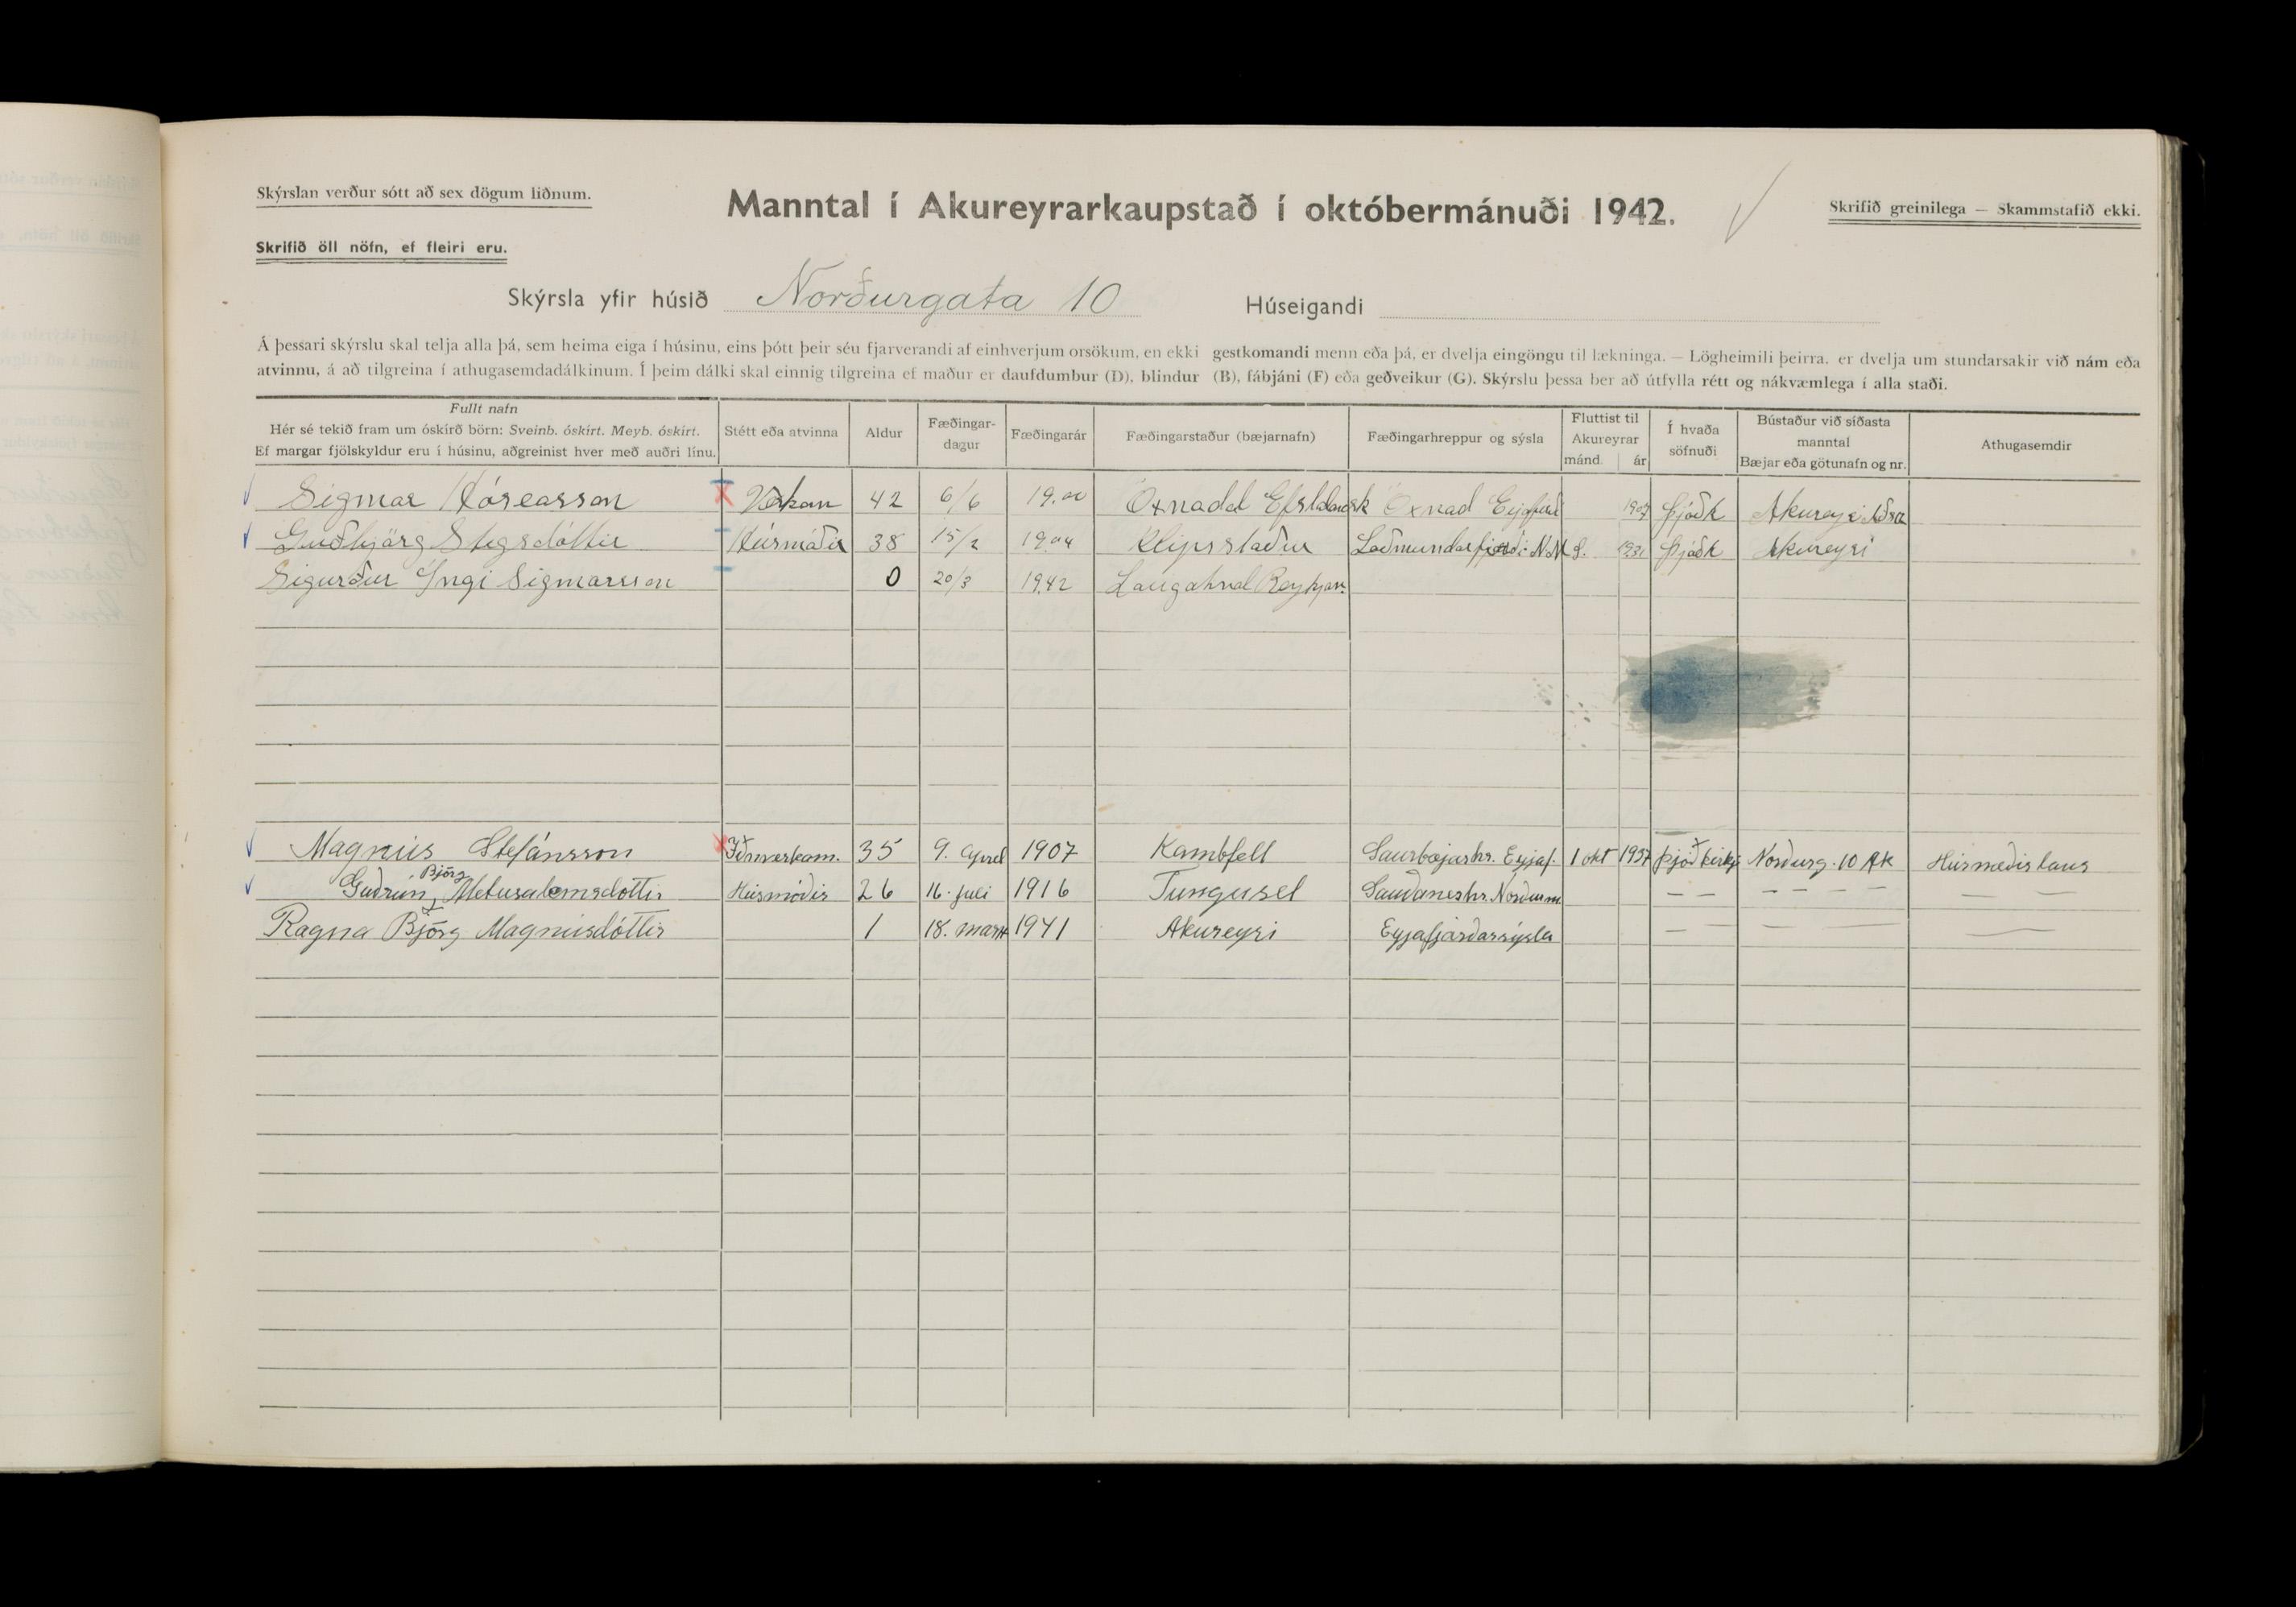 Skýrslan verður sótt að sex dögum liðnum.
Manntal í Akureyrarkaupstað í októbermánuði 1942.
Skrifið greinilega — Skammstafið ekki.
Skrifið öll nöfn, ef fleiri eru.
Skýrsla yfir húsið Norðurgata 10 Húseigandi
Á þessari skýrslu skal telja alla þá, sem heima eiga í húsinu, eins þótt þeir séu fjarverandi af einhverjum orsökum, en ekki gestkomandi menn eða þá, er dvelja eingöngu til lækninga. — Lögheimili þeirra, er dvelja um stundarsakir við nám eða
atvinnu, á að tilgreina í athugasemdadálkinum. Í þeim dálki skal einnig tilgreina ef maður er daufdumbur (D), blindur (B), fábjáni (F) eða geðveikur (G). Skýrslu þessa ber að útfylla rétt og nákvæmlega í alla staði.
Fullt nafn
Hér sé tekið fram um óskírð börn: Sveinb. óskírt. Meyb. óskírt.
Ef margar fjölskyldur eru í húsinu, aðgreinist hver með auðri línu.
Stétt eða atvinna
Aldur
Fæðingar-
dagur
Fæðingarár
Fæðingarstaður (bæjarnafn)
Fæðingarhreppur og sýsla
Fluttist til
Akureyrar
mánd. ár
Í hvaða
söfnuði
Bústaður við síðasta
manntal
Bæjar eða götunafn og nr.
Athugasemdir
Sigmar 42 6/6 19.00 Öxnadal Öxnad 1907 Þjóðk
Guðbjörg 38 15/2 19.04 Klipsstaður Loðmundarfjörði N.M.S. 1931 Þjóðk Akureyri
Sigurður Ingi Sigmarsson 0 20/3 19.42
Magnús Stefánsson Iðnverkam. 35 9. apríl 1907 Kambfell Saurbæjarhr. Eyjaf. 1 okt 1937 Þjóðkirkj Norðurg. 10 Ak
Björg
Guðrún Metusalemsdóttir Húsmóðir 26 16. júlí 1916 Tungusel Sauðaneshr. — — — — — — — —
Ragna Björg Magnúsdóttir 1 18. mars 1941 Akureyri Eyjafjarðarsýsla — — — —